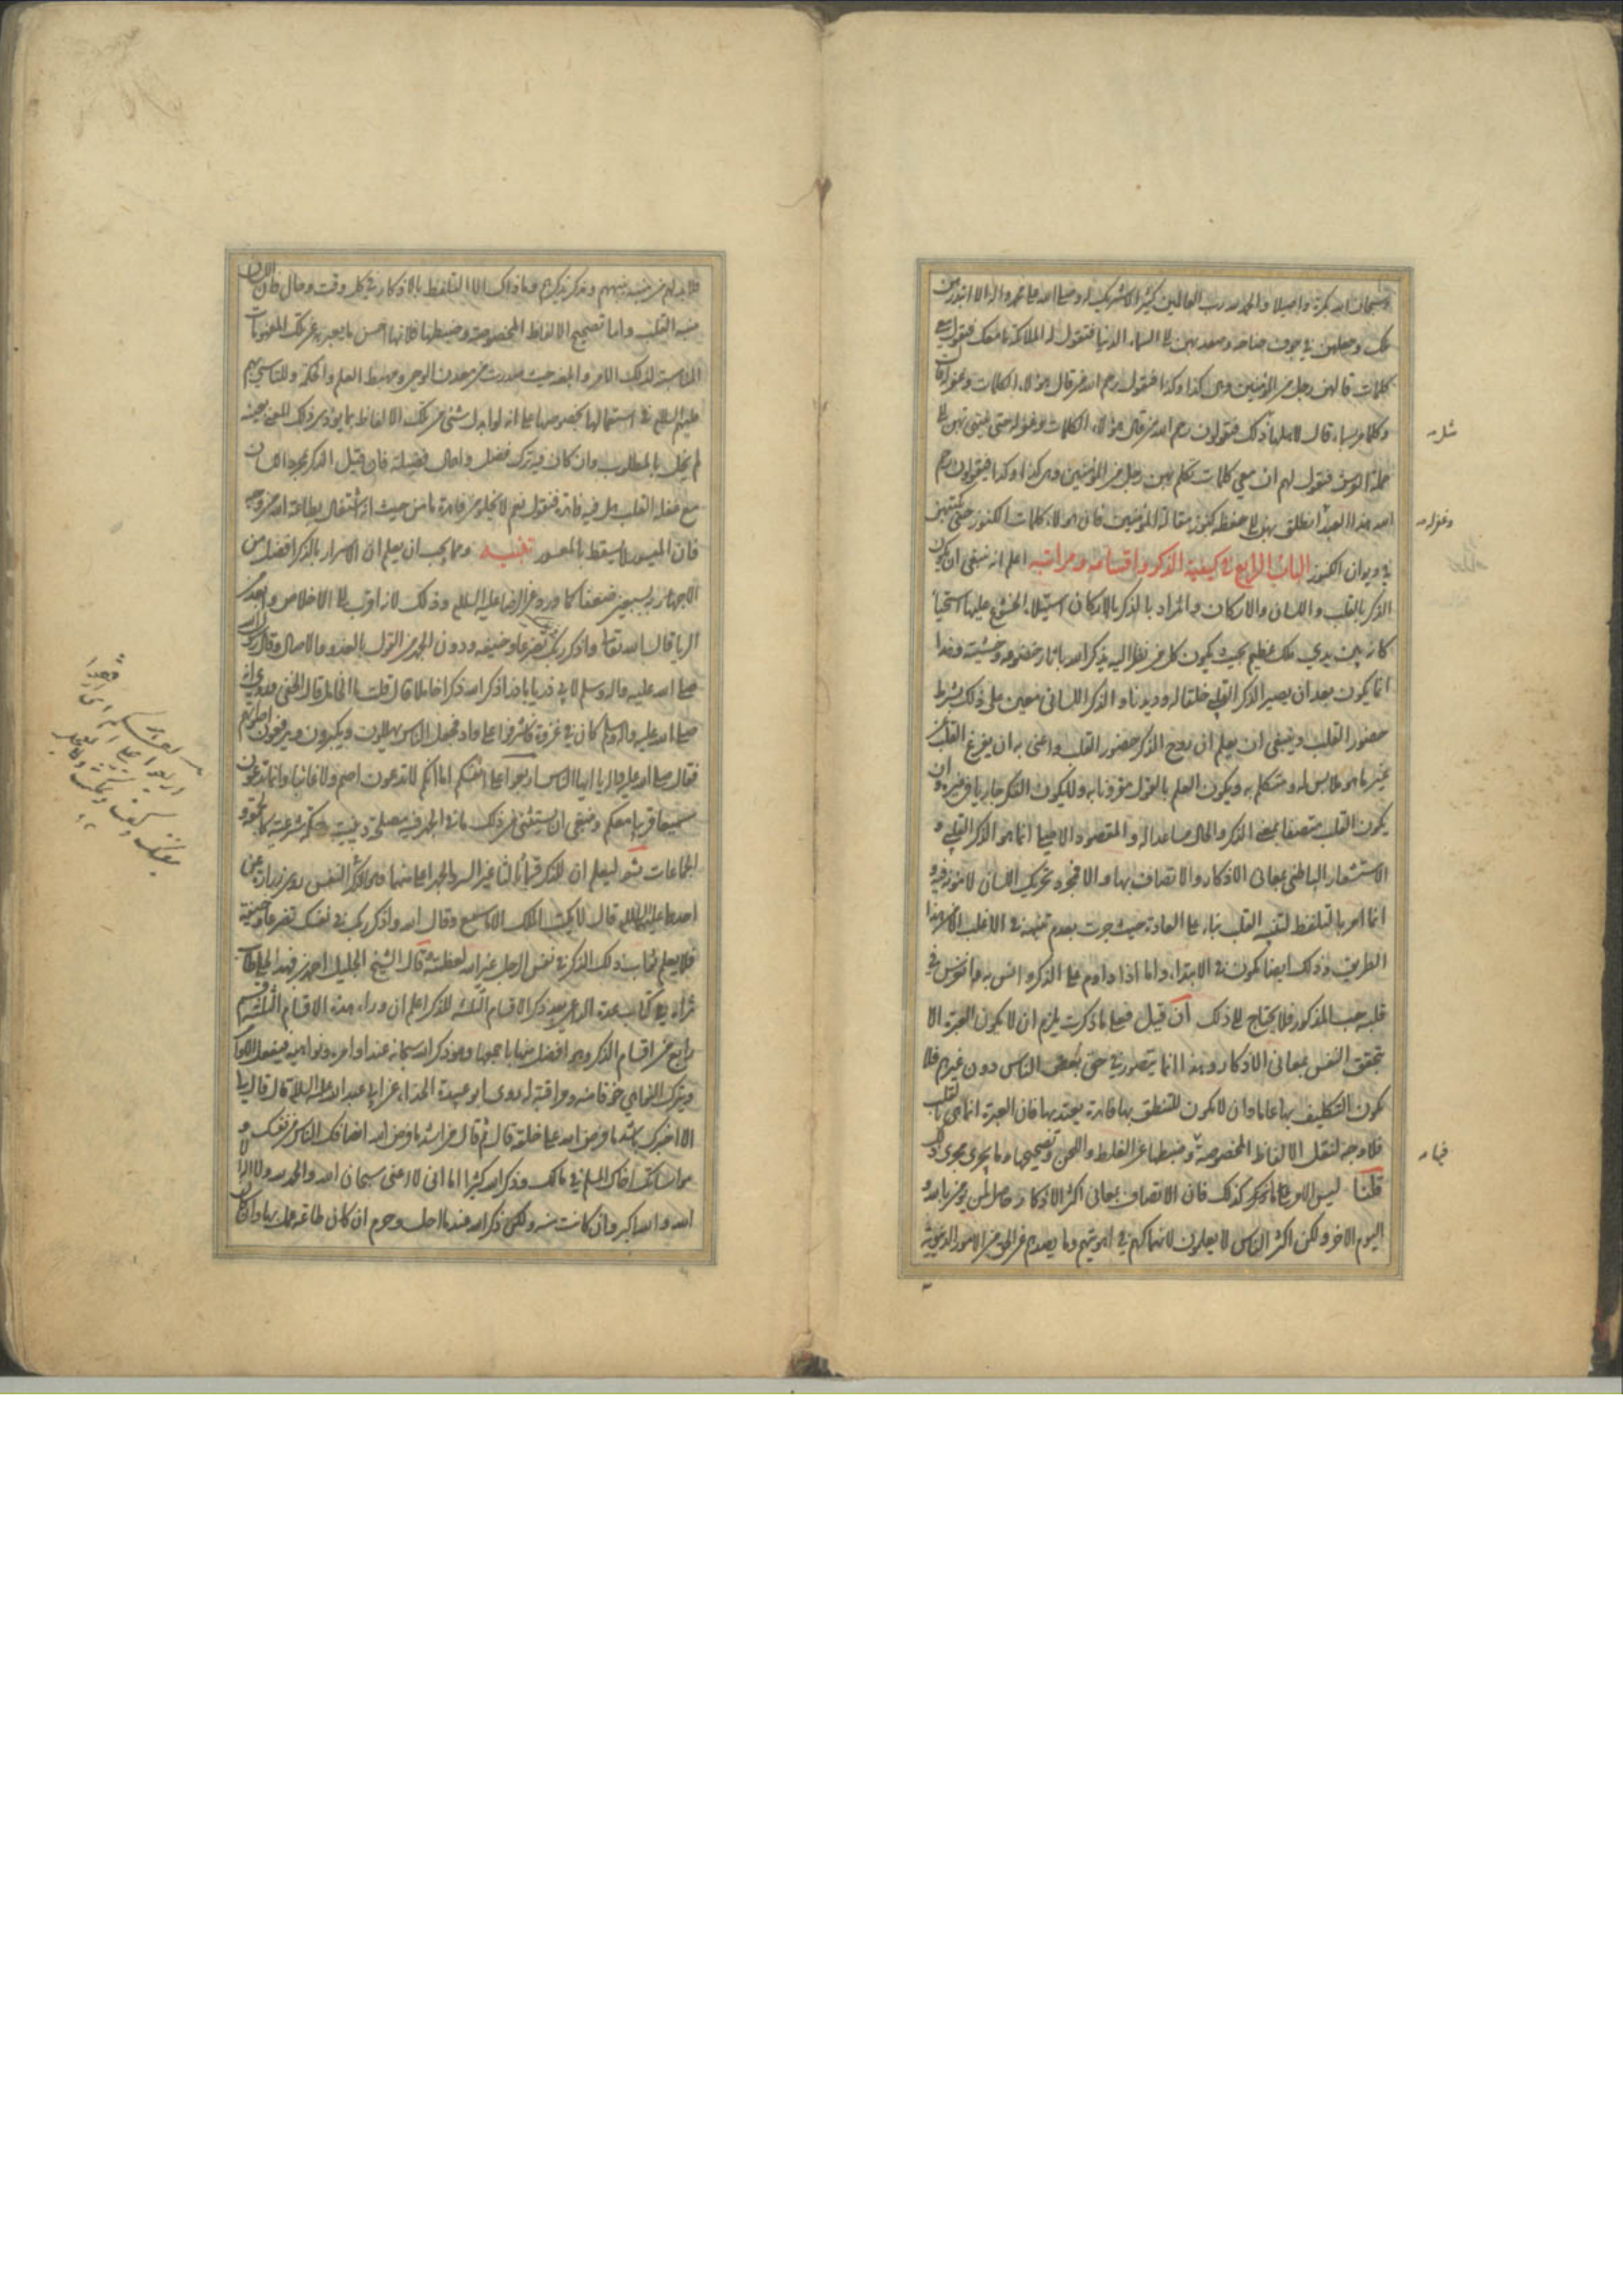 وسبحان الله بكرة واصيلا والحمد لله رب العالمين كثيرا لا شريك له وصلى الله على محمد واله الا ابتدرهن
ملك وجعلهن في جوف جناحه وصعد بهن الى السماء الدنيا فتقول له الملائكة ما معك فيقول معي
كلمات قالهن رجل من المؤمنين وهي كذا وكذا فيقولون رحم الله من قال هؤلاء الكلمات وغفر له قال
وكلما مر بسماء قال لاهلها مثل ذلك فيقولون رحم الله من قال هؤلاء الكلمات وغفر له حتى ينتهي بهن الى
حملة العرش فيقول لهم ان معي كلمات تكلم بهن رجل من المؤمنين وهي كذا وكذا فيقولون رحم
الله هذا العبد انطلق بهن الى حفظة كنوز مقالة المؤمنين فان هؤلاء كلمات الكنوز حتى تكتبهن
في ديوان الكنوز الباب الرابع في كيفية الذكر واقسامه ومراتبه اعلم انه ينبغي ان يكون
الذكر بالقلب واللسان والاركان والمراد بالذكر بالاركان استيلاء الخشوع عليها استحياء
كانه بين يدي ملك عظيم بحيث يكون كل من نظر اليه يذكر الله باثار خضوعه وخشيته وهذا
انما يكون بعد ان يصير الذكر القلبي خلقا له وديدنا والذكر اللساني معين على ذلك بشرط
حضور القلب وينبغي ان يعلم ان روح الذكر حضور القلب واعني به ان يفرغ القلب عن
غير ما هو ملابس له ومتكلم به ويكون العلم بالقول مقرونا به ولا يكون الفكر جاريا في غيره وان
يكون القلب متصفا بمعنى الذكر والحال مساعدا له والمقصود الاصلي انما هو الذكر القلبي و
الاستشعار الباطني بمعاني الاذكار والاتصاف بها والا فمجرد تحريك اللسان لا نور فيه و
انما امر بالتلفظ لتنبيه القلب بناء على العادة حيث جرت بعدم تنبهه في الاغلب الا من هذا
الطريق وذلك ايضا يكون في الابتداء واما اذا داوم على الذكر وانس به وانغرس في
قلبه حب المذكور فلا يحتاج الى ذلك ان قيل فعلى ما ذكرت يلزم ان لا يكون العبرة الا
بتحقق النفس بمعاني الاذكار وهذا انما يتصور في حق بعض الناس دون غيرهم فلا
يكون التكليف بها عاما وان لا يكون للتنطق بها فائدة يعتد بها فان العبرة انما هي بالقلب
فلا وجه لنقل الالفاظ المخصوصة وضبطها عن الغلط واللحن وتصحيحها وما يجري مجرى ذلك
قلنا ليس الامر على ما ذكر كذلك فان الاتصاف بمعاني اكثر الاذكار حاصل لمن يؤمن بالله و
اليوم الاخر ولكن اكثر الناس لا يعلمون لانهماكهم في اهويتهم وما يصدهم عن الحق من الامور الدنيوية
مثل
وغفر له
فلا بد لهم من منبه ينبههم ومذكر يذكرهم وما ذاك الا التلفظ بالاذكار في كل وقت وحال فان اللسان
منبه القلب واما تصحيح الالفاظ المخصوصة وضبطها فلانها احسن ما يعبر به عن تلك المفهومات
المناسبة لذلك الامر والعقد حيث صدرت من معدن الوحي ومهبط العلم والحكمة وللتاسي بهم
عليهم السلم في استعمالها بخصوصها على انه لو ابدل شيء من تلك الالفاظ بما يؤدي ذلك المعنى بعينه
لم يخل بالمطلوب وان كان فيه ترك فضل واهمال فضيلة فان قيل الذكر بمجرد اللسان
مع غفلة القلب هل فيه فائدة فنقول نعم لا يخلو من فائدة ما من حيث انه اشتغال بطاعة الله من وجه
فان الميسور لا يسقط بالمعسور تنبيه ومما يجب ان يعلم ان الاسرار بالذكر افضل من
الاجهار به بسبعين ضعفا كما ورد عن الرضا عليه السلم وذلك لانه اقرب الى الاخلاص وابعد من
الريا قال الله تعالى واذكر ربك تضرعا وخيفة ودون الجهر من القول بالغدو والاصال وقال رسول الله
صلى الله عليه واله وسلم لابي ذر يا باذر اذكر الله ذكرا خاملا قال قلت ما الخامل قال الخفي وروي انه
صلى الله عليه واله وسلم كان في غزوة فاشرفوا على واد فجعل الناس يهللون ويكبرون ويرفعون اصواتهم
فقال صلى الله عليه واله يا ايها الناس اربعوا على انفسكم اما انكم لا تدعون اصم ولا غائبا وانما تدعون
سميعا قريبا معكم وينبغي ان يستثنى من ذلك ما في الجهر فيه مصلحة دينية وحكمة شرعية كالجمعة و
الجماعات ثم ليعلم ان للذكر قسما ثالثا غير السر والجهر اعلى منهما وهو الذكر في النفس روى زرارة عن
احدهما عليهما السلم قال لا يكتب الملك الا ما سمع وقال الله واذكر ربك في نفسك تضرعا وخيفة
فلا يعلم ثواب ذلك الذكر في نفس الرجل غير الله لعظمته قال الشيخ الجليل احمد بن فهد الحلي طاب
ثراه في كتاب عدة الداعي بعد ذكر الاقسام الثلثة للذكر اعلم ان وراء هذه الاقسام الثلثة قسم
رابع من اقسام الذكر وهو افضل منها باجمعها وهو ذكر الله سبحانه عند اوامره ونواهيه فيفعل الاوامر
ويترك النواهي خوفا منه ومراقبة له روى ابو عبيدة الحذاء عن ابي عبد الله عليه السلم قال قال لي
الا اخبرك باشد ما فرض الله على خلقه قال ثم قال من اشد ما فرض الله انصافك الناس من نفسك و
مواساتك اخاك المسلم في مالك وذكر الله كثيرا اما اني لا اعني سبحان الله والحمد لله ولا اله الا
الله والله اكبر وان كانت منه ولكن ذكر الله عند ما احل وحرم ان كان طاعة عمل بها وان كان